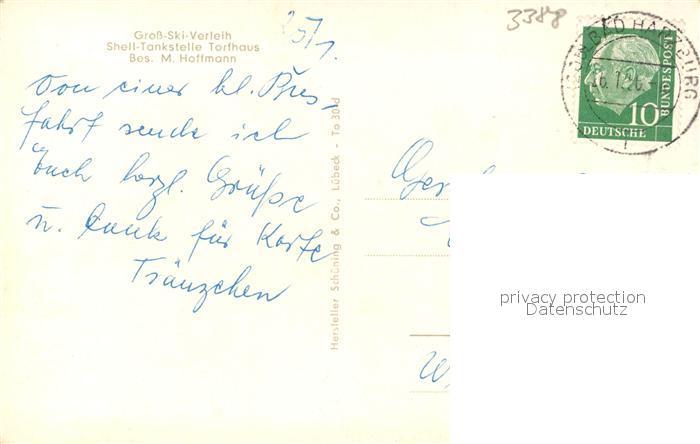 3388
25/1.
Groß-Ski-Verleih
Shell-Tankstelle Torfhaus
Bes. M. Hoffmann
Von einer kl. Bus-
fahrt sende ich
Euch herzl. Grüße
u. Dank für Karte
Tränzchen
Hersteller Schöning & Co., Lübeck - To 30 d
BAD HARZBURG
10
DEUTSCHE
BUNDESPOST
privacy protection
Datenschutz